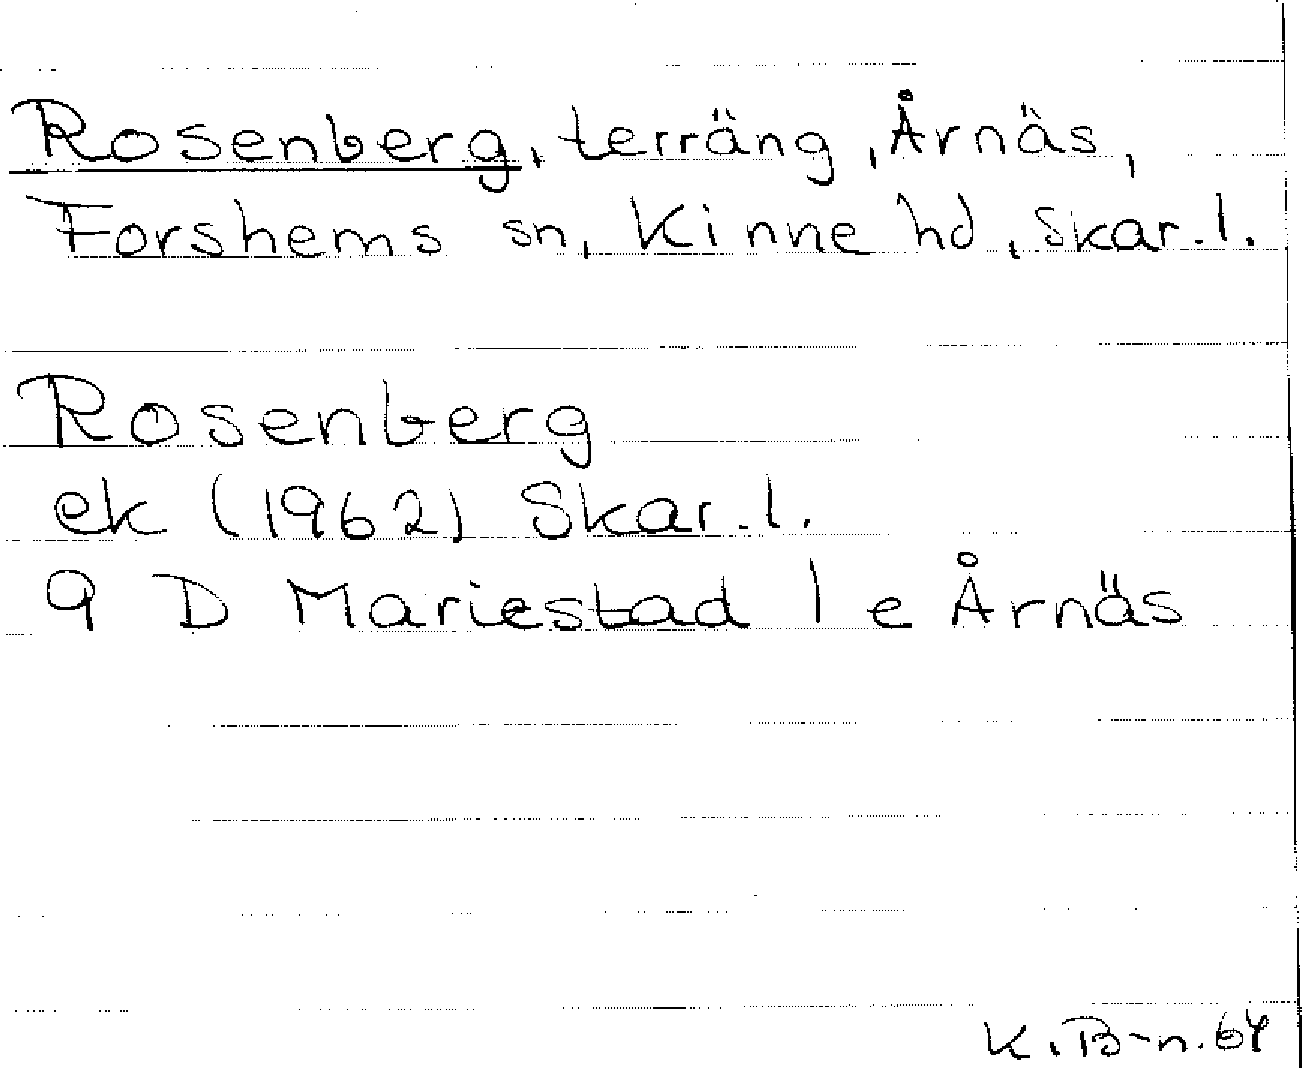 Rosenberg, terräng, Årnäs,
Forshems sn, Kinne hd, Skar. l.
Rosenberg
ek (1962) Skar. l.
9 D Mariestad 1 e Årnäs
K. B-n. 64